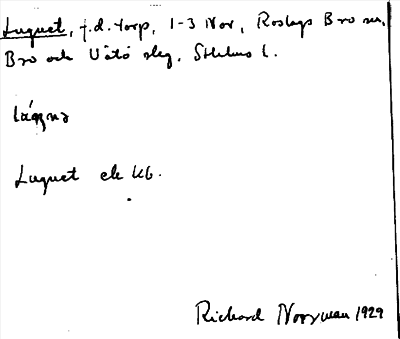 Luguet, f.d. torp, 1-3 Nor, Roslags Bro sn,
Bro och Vätö slg, Sthlms l.
Luguet ek kb.
Richard Norrman 1929